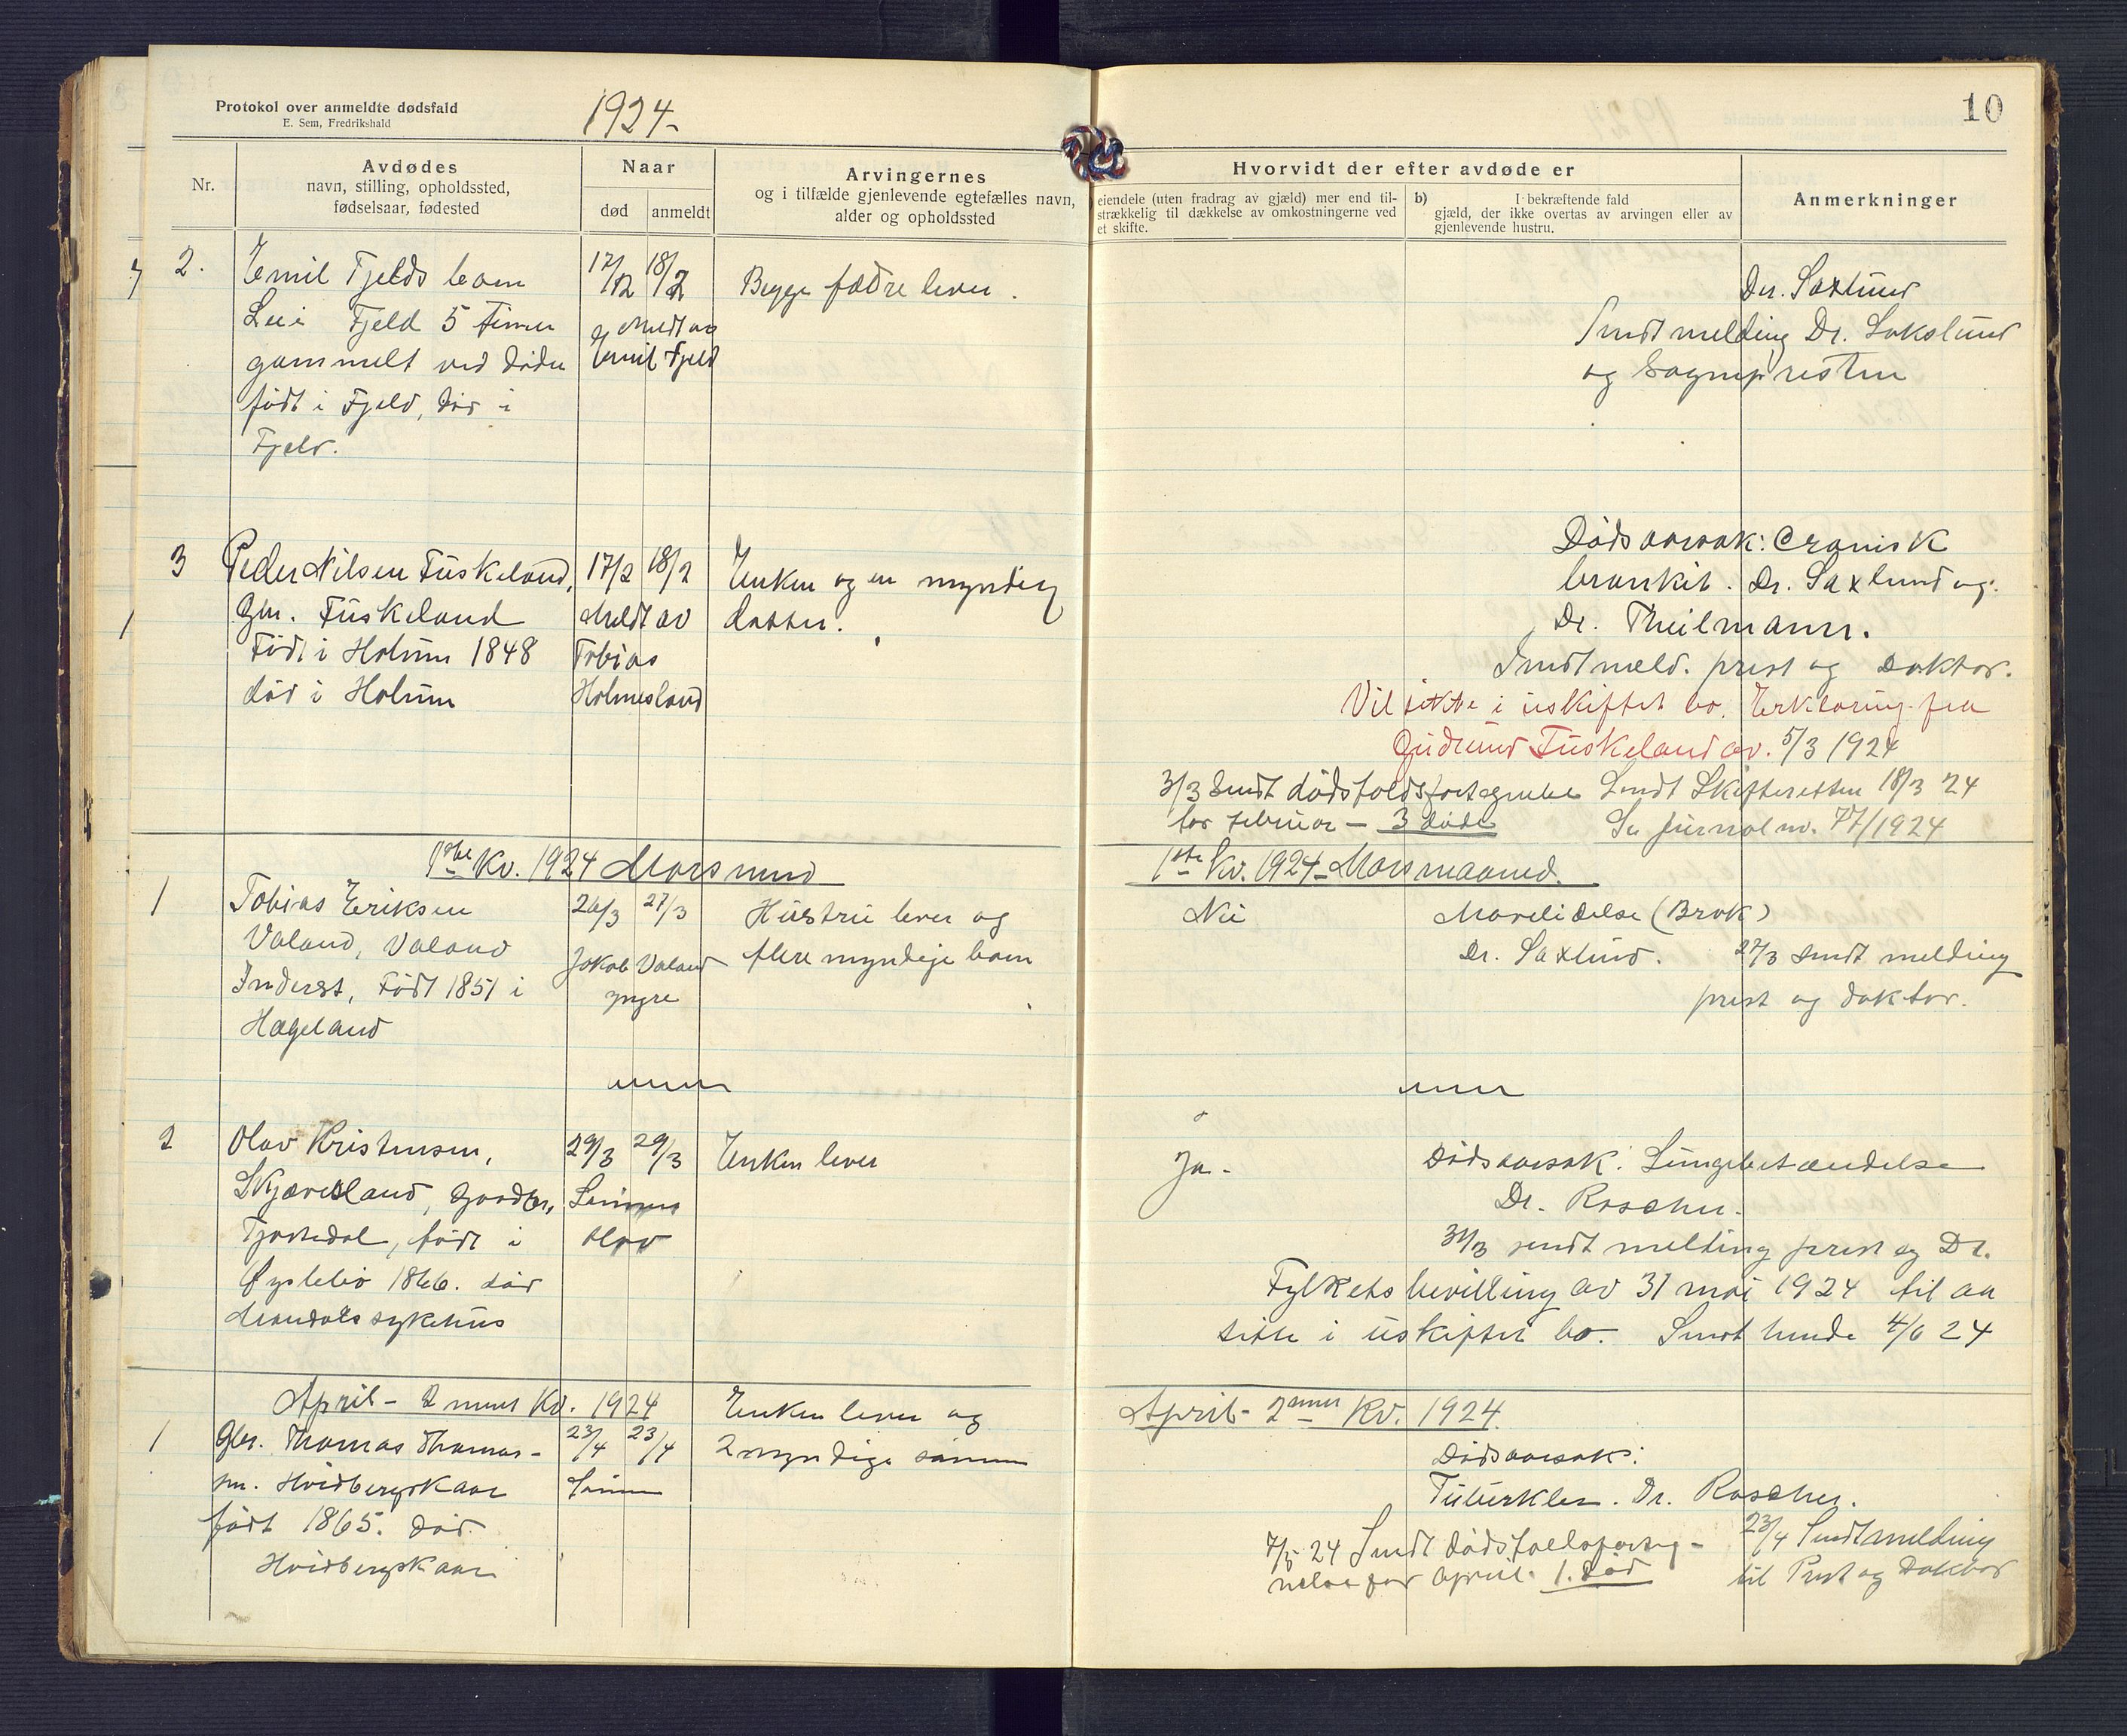 Protokol over anmeldte dødsfald
E. Sem, Fredrikshald
1924-
10
Nr.
Avdødes
navn, stilling, opholdssted,
fødselsaar, fødested
Naar
død
anmeldt
Arvingernes
og i tilfælde gjenlevende egtefælles navn,
alder og opholdssted
Hvorvidt der efter avdøde er
eiendele (uten fradrag av gjæld) mer end til-
strækkelig til dækkelse av omkostningerne ved
et skifte.
b) I bekræftende fald
gjæld, der ikke overtas av arvingen eller av
gjenlevende hustru.
Anmerkninger
2.
Emil Fjelds barn
Fjeld 5 timer
gammelt ved døden
født i Fjeld, død i
Fjeld.
17/2 18/2
Meldt av
Emil Fjeld
Begge fædre lever.
Dr. Saxlund
Sendt melding Dr. Sakslund
og Sognepresten
3
Peder Nilsen Fuskeland,
Gbr. Fuskeland
Født i Holum 1848
død i Holum
17/2 18/2
Meldt av
Tobias
Holmesland
Enken og en myndig
datter.
Dødsaarsak: Cronisk
bronkit. Dr. Saxlund og
Dr. Theilmann.
Sendt meld. prest og Doktor.
Vil sitte i uskiftet bo. Erklæring fra
Gudrund Fuskeland av. 5/3 1924
3/3 Sendt dødsfaldsfortegnelse
for februar - 3 døde
Sendt Skifteretten 18/3 24
Se Jurnal nr. 77/1924
1ste Kv. 1924 Mars mnd
1ste Kv. 1924 - Mars maaned.
1
Tobias Eriksen
Valand, Valand
Inderst, Født 1851 i
Hægeland
26/3 27/3
Jakob Valand
yngre
Hustru lever og
flere myndige barn
Nei
Mavelidelse (Brok)
Dr. Saxlund.
27/3 sendt melding
prest og doktor.
2
Olav Kristensen,
Skjævesland, Gaardbr.
Tjostedal, født i
Øyslebø 1866. død
Mandals sykehus
29/3 29/3
Sønnen
Olav
Enken lever
Ja.
Dødsaarsak: Lungebetændelse
Dr. Roscher.
31/3 sendt melding prest og Dr.
Fylkets bevilling av 31 mai 1924 til aa
sitte i uskiftet bo. Sendt 4/6 24
April - 2 nnet Kv. 1924
April - 2 Kv. 1924.
1
Gbr. Thomas Thomas-
sen. Hvidbergskaar
født 1865. død
Hvidbergskaar
23/4 23/4
Sønnen
Enken lever og
2 myndige sønner
Dødsaarsak:
Tuberkler. Dr. Roscher.
7/5 24 Sendt dødsfaldsforteg-
nelse for April. 1. død
23/4 Sendt melding
til Prest og Doktor